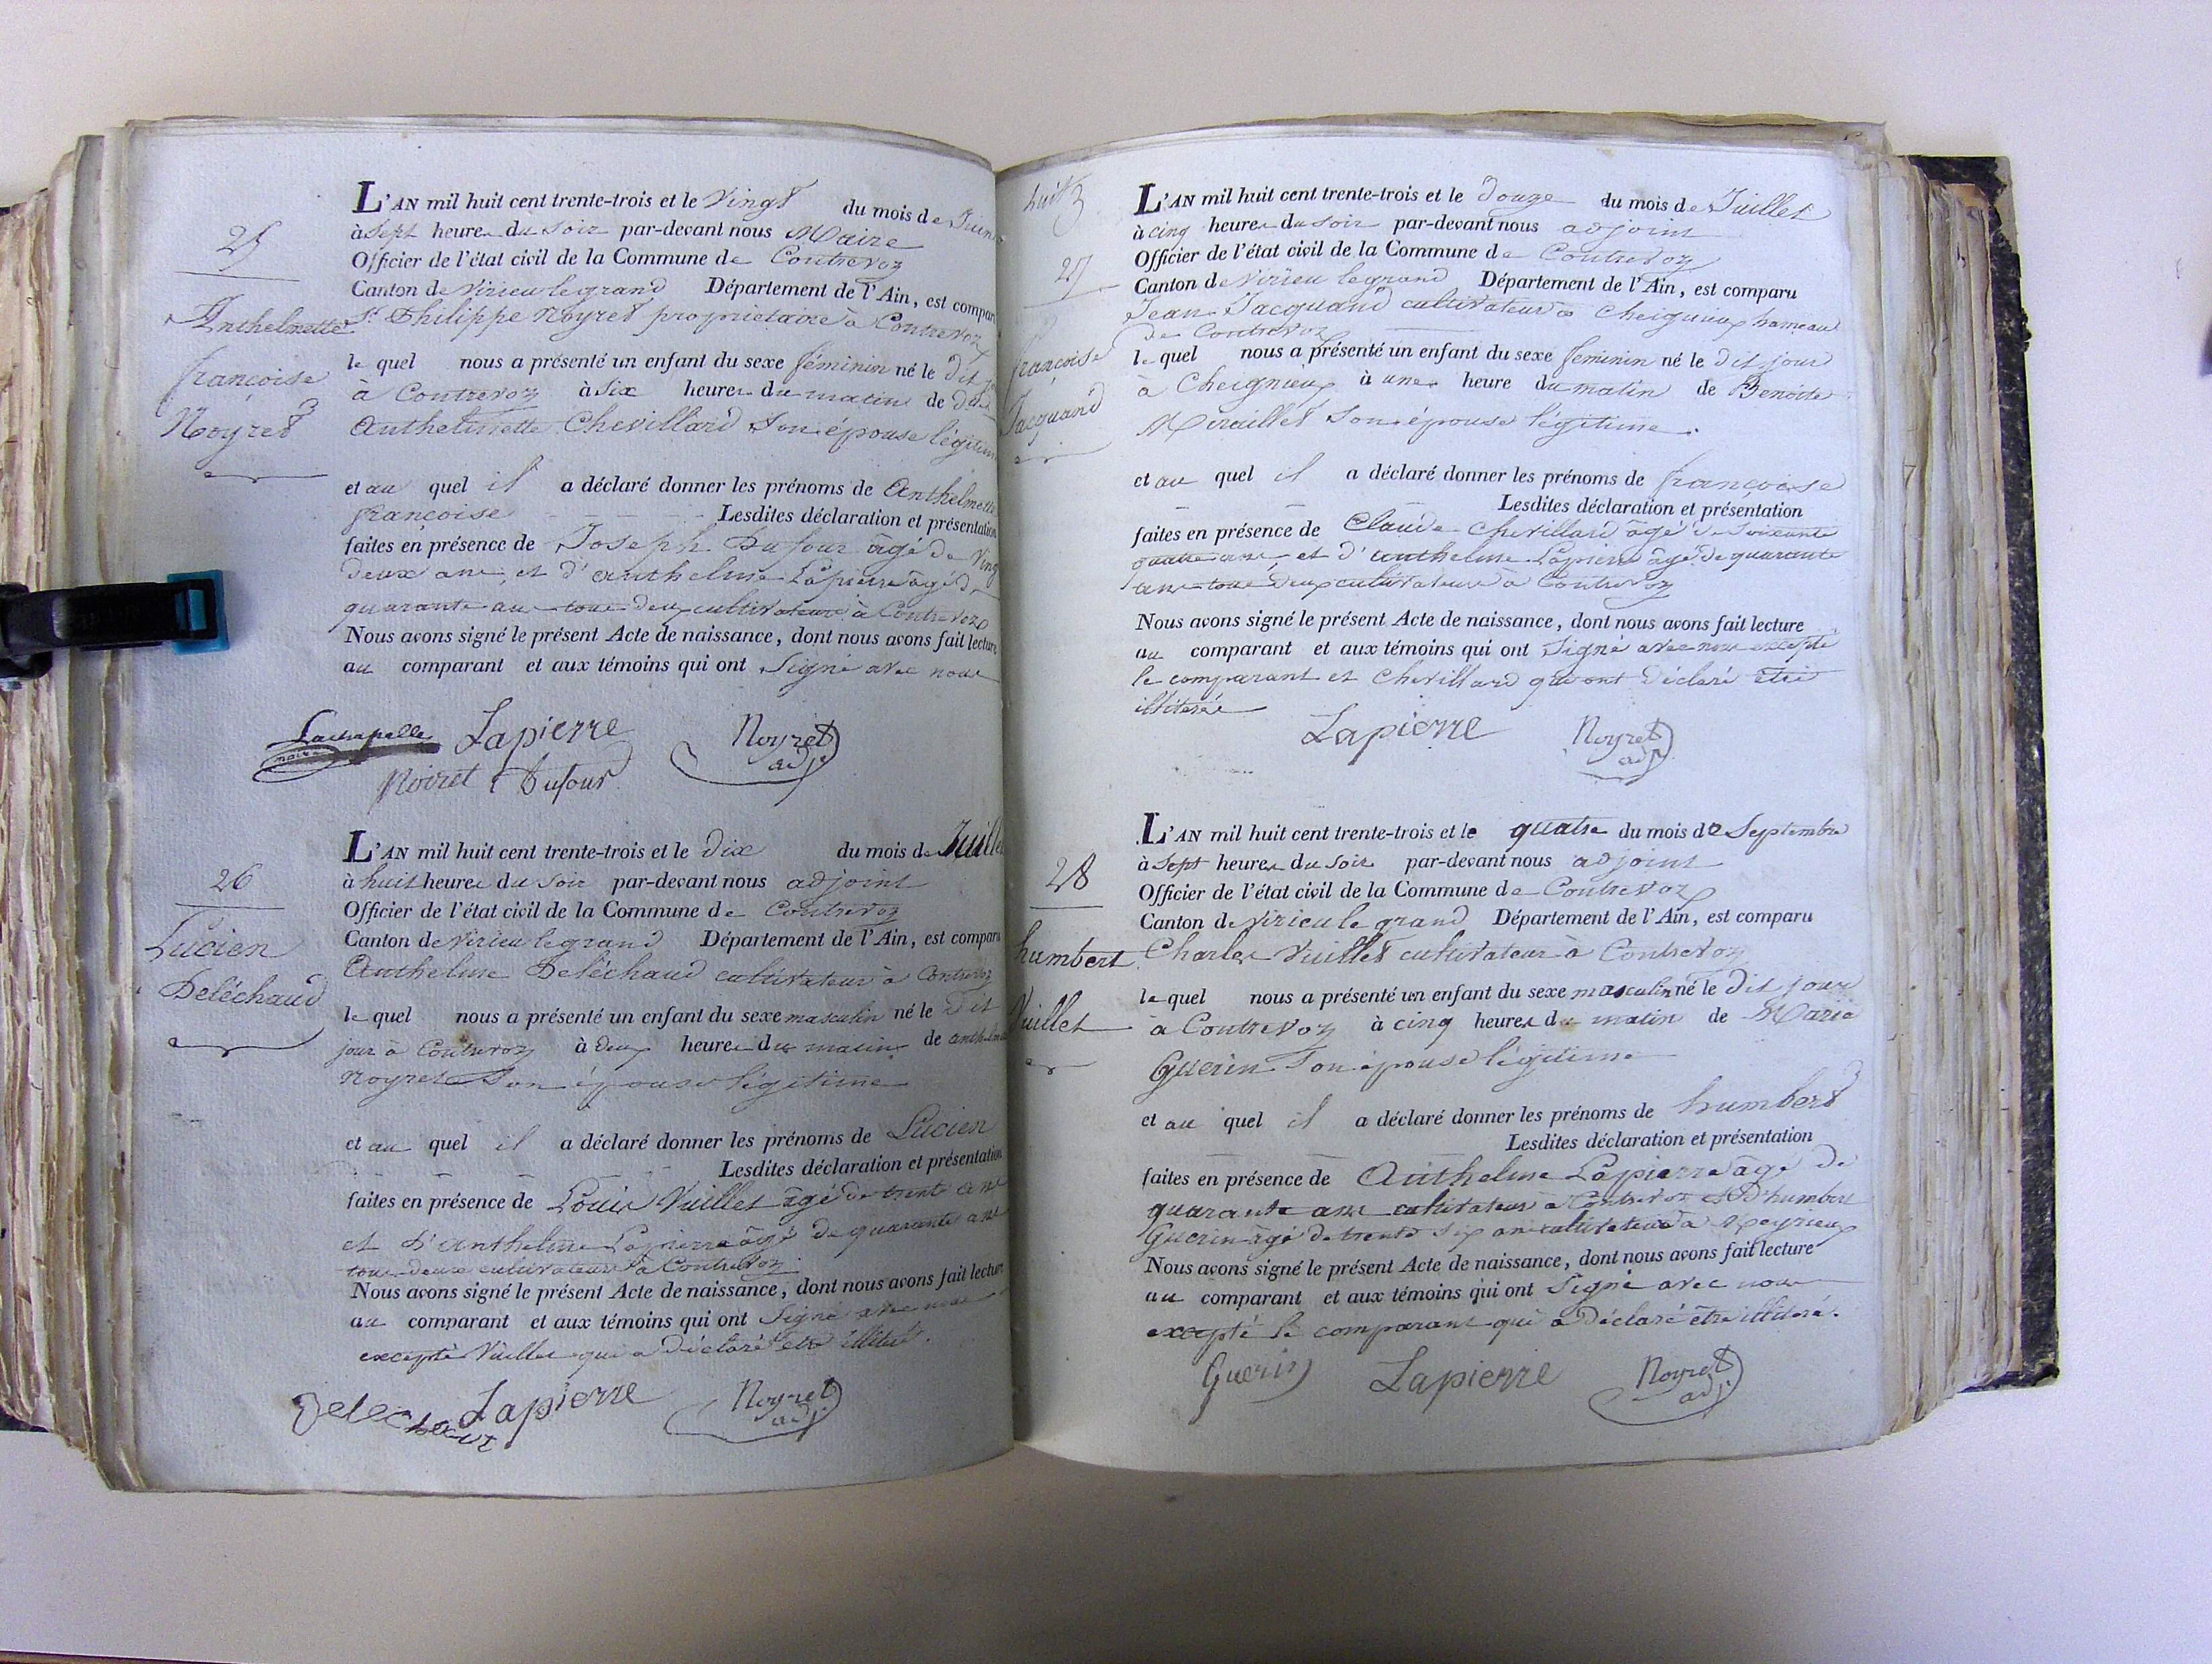 25
Anthelmette
françoise
Noyret
L'AN mil huit cent trente-trois et le Vingt du mois de Juin
à Sept heures du soir par-devant nous Maire
Officier de l'état civil de la Commune de Contrevoz
Canton de Virieu le grand Département de l'Ain, est compar
Sr Philippe Noyret propriétaire à Contrevoz
le quel nous a présenté un enfant du sexe féminin né le dit
à Contrevoz à Six heures du matin de
Anthelmette Chevillard Son épouse légitim
et au quel il a déclaré donner les prénoms de Anthelmette
françoise Lesdites déclaration et présentation
faites en présence de Joseph Dufour âgé de Ving
deux ans, et d'anthelme Lapierre âgé d
quarante ans tous deux cultivateurs à Contrevoz
Nous avons signé le présent Acte de naissance, dont nous avons fait lecture
au comparant et aux témoins qui ont Signé avec nous
Lachapelle Lapierre Noyret
maire adj.
Noiret Dufour
26
Lucien
Deléchaud
L'AN mil huit cent trente-trois et le dix du mois de Juille
à huit heures du Soir par-devant nous adjoint
Officier de l'état civil de la Commune de Contrevoz
Canton de Virieu le grand Département de l'Ain, est comparu
Anthelme Deléchaud cultivateur à Contrevoz
le quel nous a présenté un enfant du sexe masculin né le Dit
jour à Contrevoz à deux heures du matin de
Noyret Son épouse légitime
et au quel il a déclaré donner les prénoms de Lucien
Lesdites déclaration et présentation
faites en présence de Louis Vuillet âgé de trente ans
et d'anthelme Lapierre âgé de quarante ans
tous deux cultivateurs à Contrevoz
Nous avons signé le présent Acte de naissance, dont nous avons fait lecture
au comparant et aux témoins qui ont Signé avec nous
excepté Vuillet qui a déclaré être
Lapierre Noyret
adj.
huit
27
françoise
Jacquand
L'AN mil huit cent trente-trois et le Douze du mois de Juillet
à cinq heures du soir par-devant nous adjoint
Officier de l'état civil de la Commune de Contrevoz
Canton de Virieu le grand Département de l'Ain, est comparu
Jean Jacquand cultivateur à Cheignieux hameau
de Contrevoz
le quel nous a présenté un enfant du sexe feminin né le dit jour
à Cheignieux à une heure du matin de Benoite
Miraillet Son épouse légitime.
et au quel il a déclaré donner les prénoms de françoise
Lesdites déclaration et présentation
faites en présence de Claude Chevillard âgé de Soixante
quatre ans, et d'anthelme Lapierre âgé de quarante
ans tous deux cultivateurs à Contrevoz
Nous avons signé le présent Acte de naissance, dont nous avons fait lecture
au comparant et aux témoins qui ont Signé avec nous excepté
le comparant et Chevillard qui ont déclaré être
illiterés
Lapierre Noyret
adj.
28
humbert
Vuillet
L'AN mil huit cent trente-trois et le quatre du mois de Septembre
à Sept heures du Soir par-devant nous adjoint
Officier de l'état civil de la Commune de Contrevoz
Canton de Virieu le grand Département de l'Ain, est comparu
Charles Vuillet cultivateur à Contrevoz
le quel nous a présenté un enfant du sexe masculin né le dit jour
à Contrevoz à cinq heures du matin de Marie
Guerin Son épouse légitime
et au quel il a déclaré donner les prénoms de humbert
Lesdites déclaration et présentation
faites en présence de Anthelme Lapierre âgé de
quarante ans cultivateur à Contrevoz et d'humbert
Guerin âgé de trente Six ans cultivateur à Meyrieux
Nous avons signé le présent Acte de naissance, dont nous avons fait lecture
au comparant et aux témoins qui ont Signé avec nous
excepté le comparant qui a déclaré être illiteré.
Guerin Lapierre Noyret
adj.